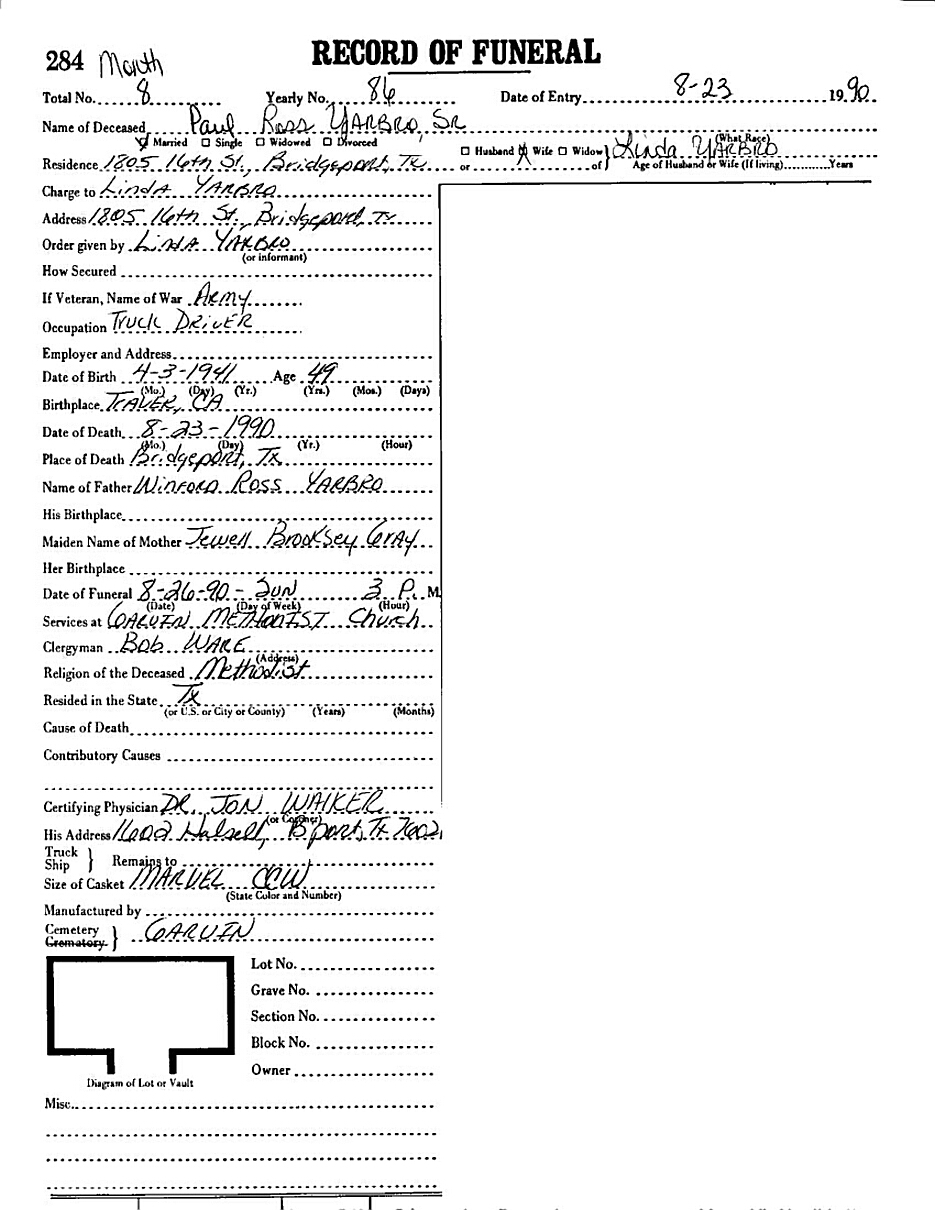 284 Month RECORD OF FUNERAL
Total No. 8 Yearly No. 86 Date of Entry 8-23 1990
Name of Deceased Paul Ross YARBRO, SR (What Race)
☑ Married ☐ Single ☐ Widowed ☐ Divorced ☐ Husband ☒ Wife ☐ Widow } Linda YARBRO
Residence 1805 16th St., Bridgeport, TX or of Age of Husband or Wife (If living) Years
Charge to LindA YARBRO
Address 1805 16th St., Bridgeport, Tx
Order given by LindA YARBRO
(or informant)
How Secured
If Veteran, Name of War Army
Occupation Truck DRIVER
Employer and Address
Date of Birth 4-3-1941 Age 49
(Mo.) (Day) (Yr.) (Yrs.) (Mos.) (Days)
Birthplace TRAVER, CA
Date of Death 8-23-1990
(Mo.) (Day) (Yr.) (Hour)
Place of Death Bridgeport, Tx
Name of Father WINFORD ROSS YARBRO
His Birthplace
Maiden Name of Mother Jewell Brooksey GrAy
Her Birthplace
Date of Funeral 8-26-90 - SUN 3 P. M
(Date) (Day of Week) (Hour)
Services at GARVIN METHODIST Church
Clergyman BOB WARE
(Address)
Religion of the Deceased Methodist
Resided in the State TX
(or U.S. or City or County) (Years) (Months)
Cause of Death
Contributory Causes
Certifying Physician DR. JON WALKER
(or Coroner)
His Address 1602 Halsell, B'port, Tx 7602
Truck
Ship } Remains to
Size of Casket MARVEL CCW
(State Color and Number)
Manufactured by
Cemetery
Crematory } GARVIN
Lot No.
Grave No.
Section No.
Block No.
Owner
Diagram of Lot or Vault
Misc.